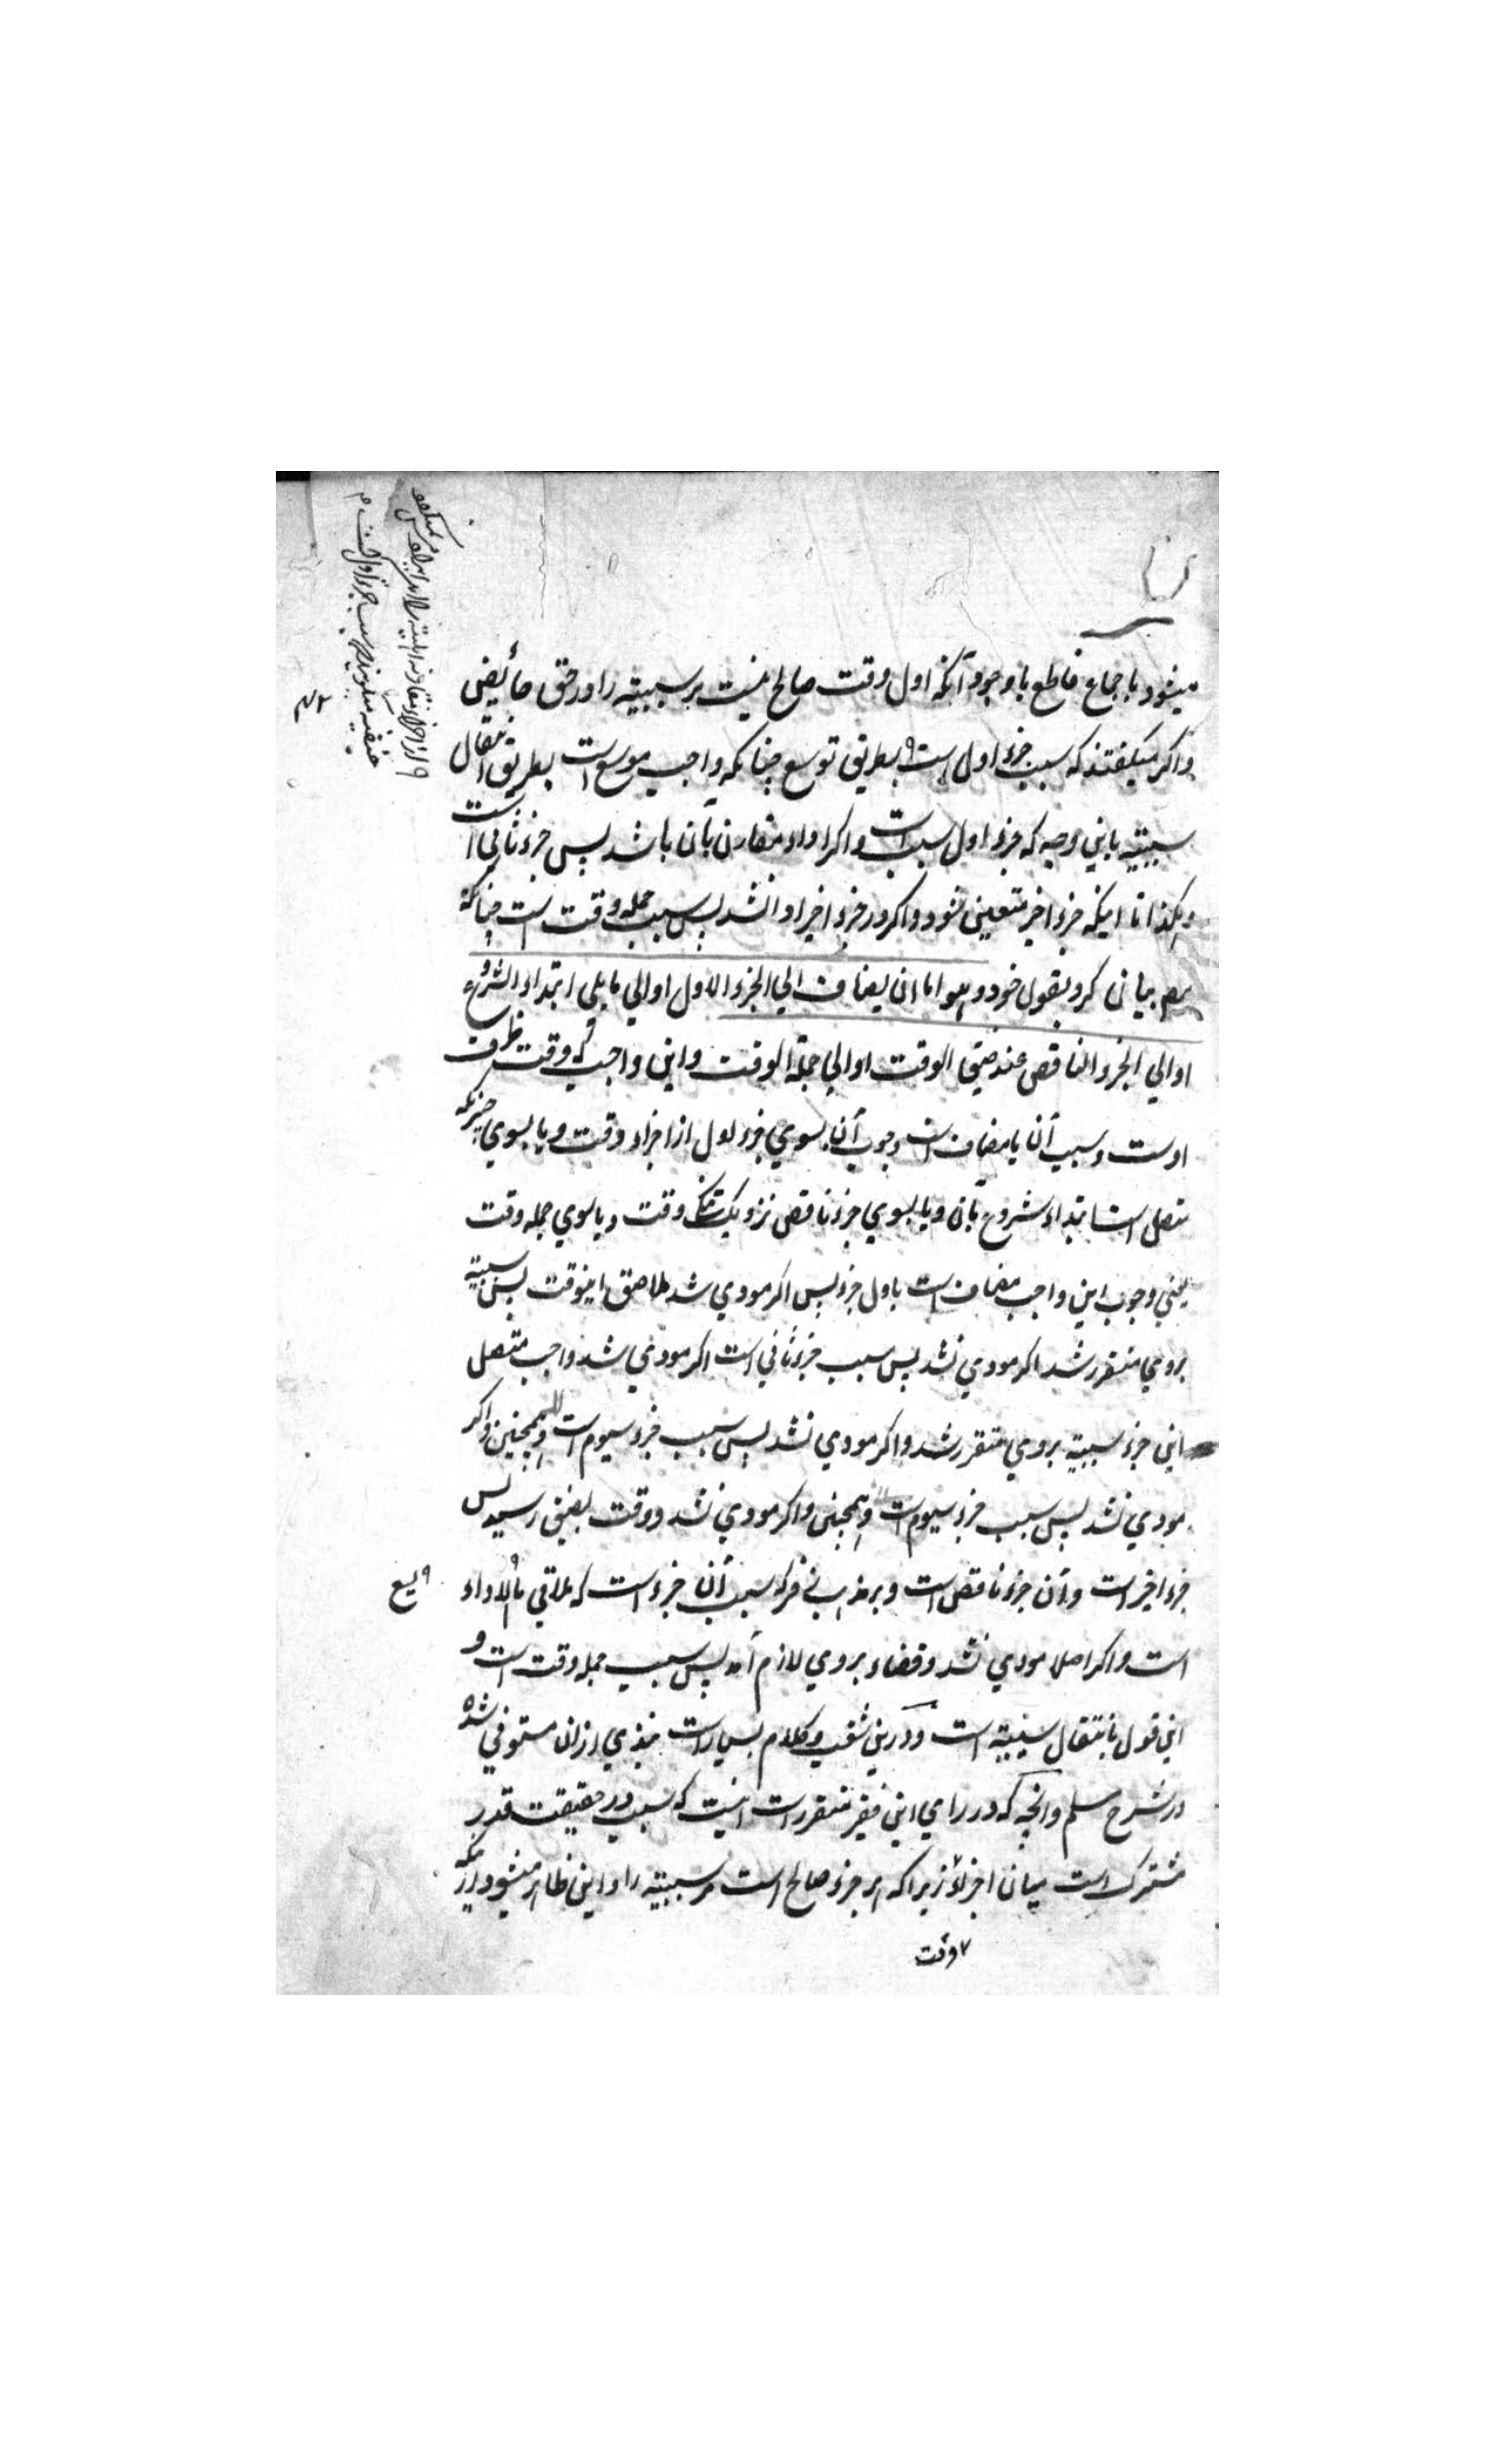 میشود باجماع قاطع با وجود آنکه اول وقت صالح نیست مر سببیته را در حق حائض
و اکر میکفتند که سبب جزء اول است ۹ بطریق توسع چنانکه واجب موسع است بطریق انتقال
سببیته باین وجه که جزء اول سبب است و اکر اداء مقارن بآن باشد پس جزء ثانی است
و هکذا تا اینکه جزء اخیر متعین شود و اکر در جزء اخیر ادا نشد پس سبب جمله وقت است چنانکه
مصـ بیان کرد بقول خود وهو اما ان یضاف الی الجزء الاول او الی ما یلی ابتداء الشروع
او الی الجزء الناقص عند ضیق الوقت او الی جملة الوقت و این واجب که وقت ظرف
اوست و سبب آن یا مضاف است وجوب آن بسوی جزء اول از اجزاء وقت و یا بسوی جزیکه
متصل است ابتداء شروع بآن و یا بسوی جزء ناقص نزدیک تنک وقت و یا بسوی جمله وقت
یعنی وجوب این واجب مضاف است باول جزء پس اکر مودی شد ملاصق اینوقت پس سببیته
بروی متقرر شد اکر مودی نشد پس سبب جزء ثانی است اکر مودی شد واجب متصل
این جزء سببیة بروی متقرر شد و اکر مودی نشد پس سبب جزء سیوم است و همچنین و اکر
مودی نشد پس سبب جزء سیوم است و همچنین و اکر مودی نشد و وقت بضیق رسید پس
جزء اخیر است و آن جزء ناقص است و بر مذهب زفر که سبب آن جزء است که ملاقی الاداء
۹ یسع
است و اکر اصلا مودی نشد و قضاء بروی لازم آمد پس سبب جمله وقت است و
این قول بانتقال سببیته است و درین شغب و کلام بسیار است نبذی ازان مستوفی شده
در شرح مسلم و آنچه که در رای این فقیر متقرر است اینست که سبب در حقیقت قدر
مشترک است میان اجزاء زیرا که هر جزء صالح است مر سببیته را و این ظاهر میشود ازینکه
۷ وقت